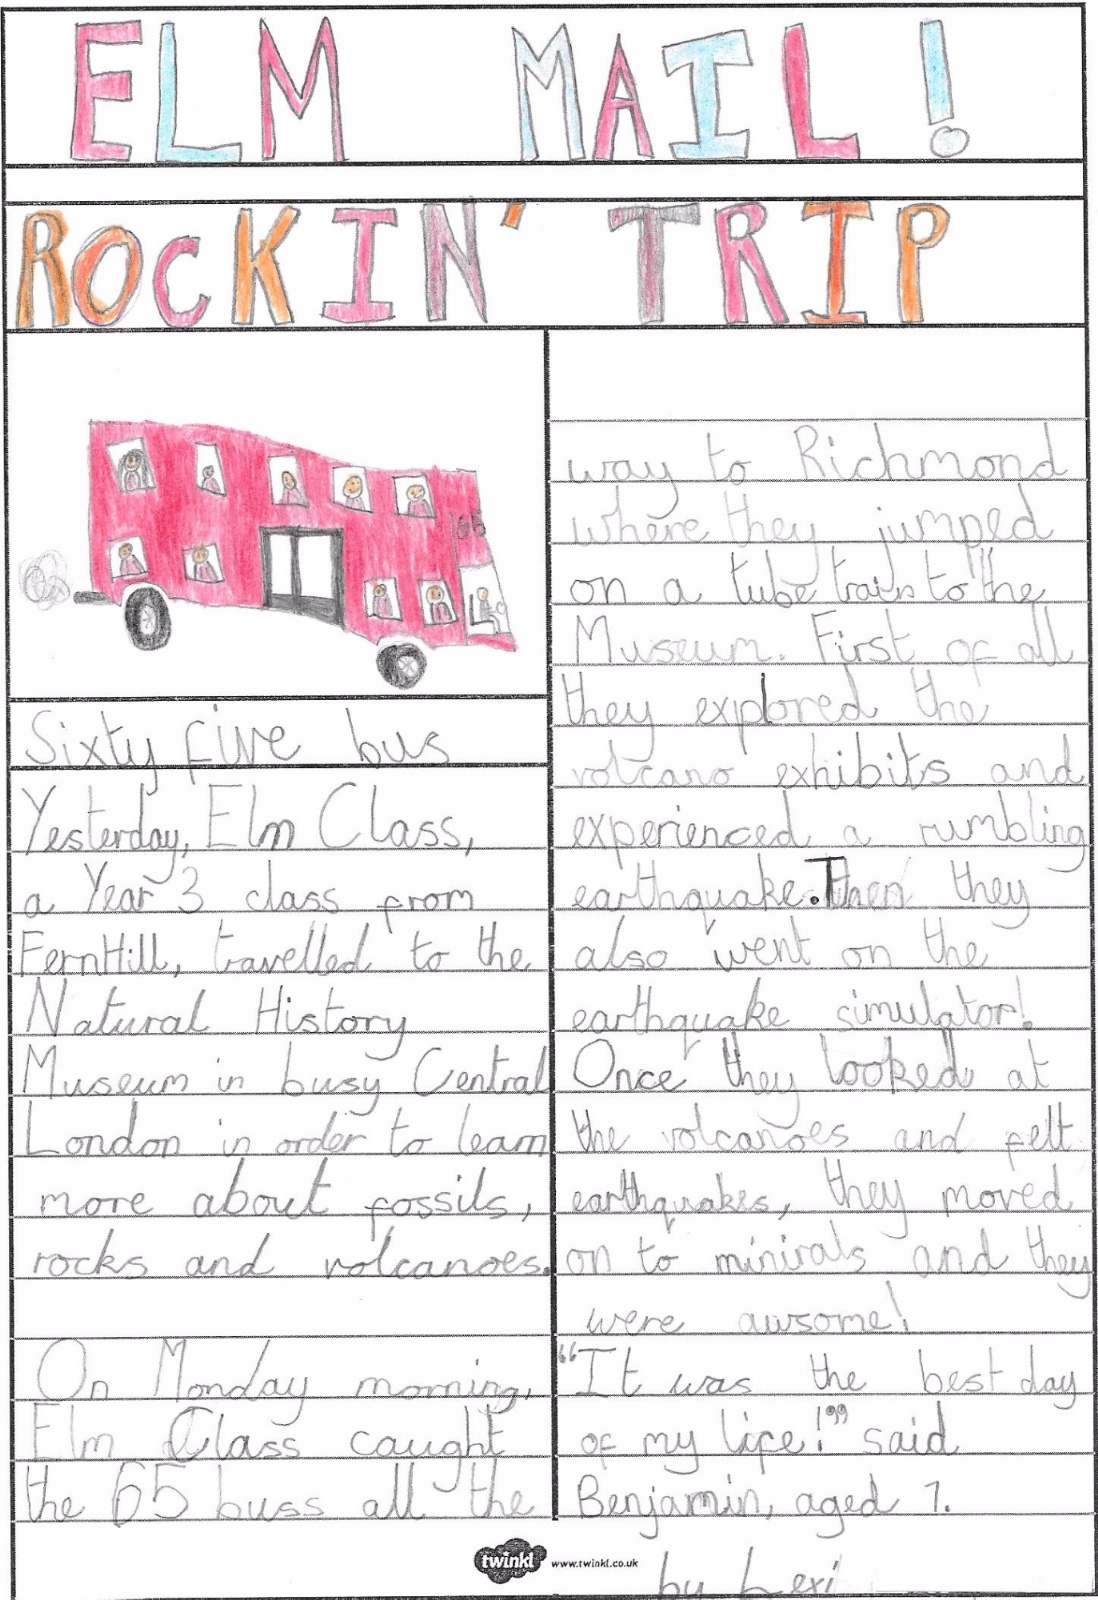 ELM MAIL!
ROCKIN' TRIP
65
Sixty five bus
Yesterday, Elm Class,
a Year 3 class from
FernHill, travelled to the
Natural History
Museum in busy Central
London in order to learn
more about fossils,
rocks and volcanoes.
On Monday morning,
Elm Class caught
the 65 buss all the
way to Richmond
where they jumped
on a tube train to the
Museum. First of all
they explored the
volcano exhibits and
experienced a rumbling
earthquake. Then they
also went on the
earthquake simulator!
Once they looked at
the volcanoes and felt
earthquakes, they moved
on to minirals and they
were awsome!
"It was the best day
of my life!" said
Benjamin, aged 7.
by Lexi
twinkl www.twinkl.co.uk